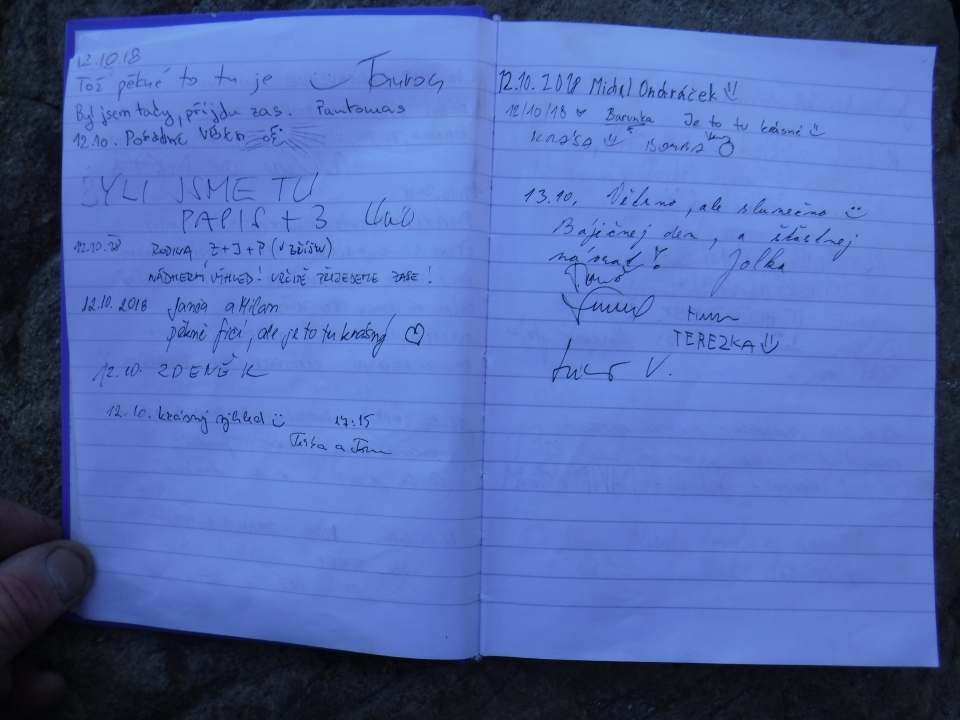 12.10.18
Tož pěkné to tu je
Byl jsem tady, přijdu zas. Fantomas
12.10. Pořádně
BYLI JSME TU
PAPIS + 3
12.10.18 RODINA Z + J + P
NÁDHERNÝ VÝHLED! URČITĚ PŘIJEDEME ZASE!
12.10.2018 Jana a Milan
pěkně fičí, ale je to tu krásný ♡
12.10. ZDENĚK
12.10. krásný výhled 17:15
Terka a Tom
12.10.2018 Michal Ondráček
12/10/18 Barunka Je to tu krásné
KRÁSA BOMBA
13.10. Větrno, ale slunečno
Báječnej den, a šťastnej
návrat! Jolka
TEREZKA
V.